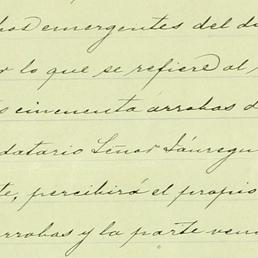 hos emergentes del d
r lo que se refiere al
s cincuenta arrobas d
datario Señor Jáuregu
te, percibirá el propio
arrobas y la parte vend